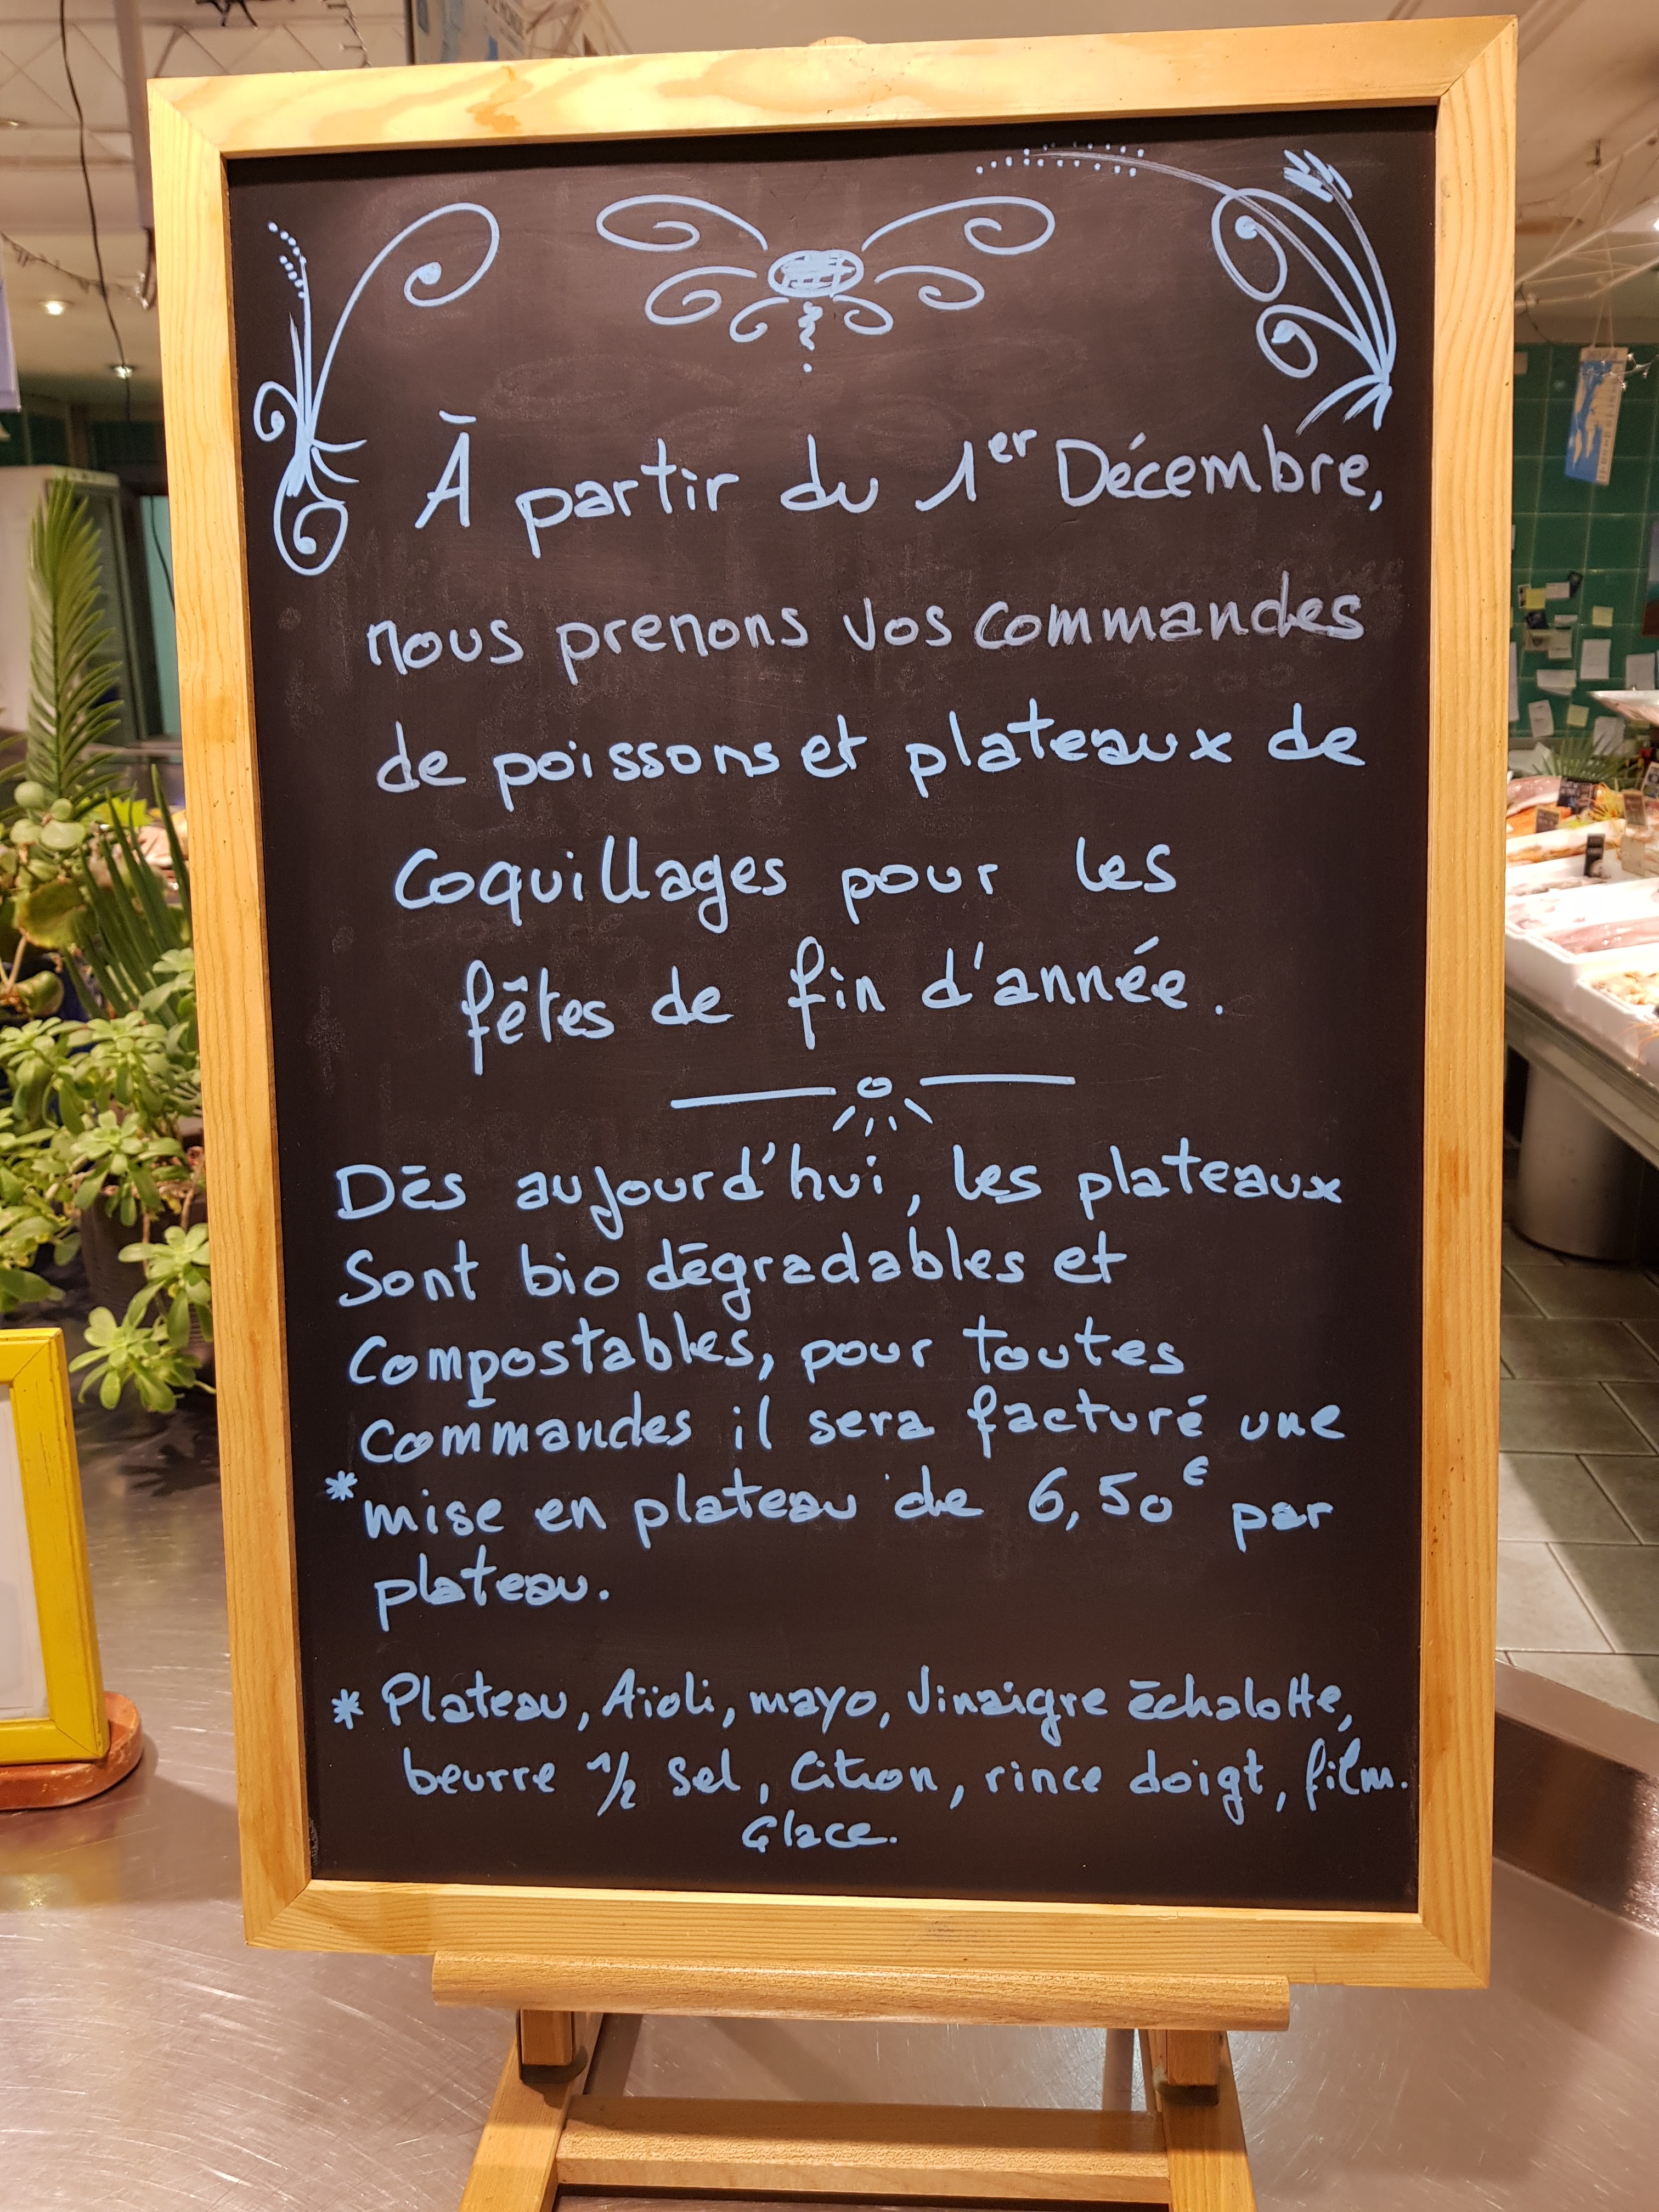 À partir du 1er Décembre,
nous prenons vos commandes
de poissons et plateaux de
Coquillages pour les
fêtes de fin d'année.
Dès aujourd'hui, les plateaux
Sont bio dégradables et
Compostables, pour toutes
Commandes il sera facturé une
*mise en plateau de 6,50€ par
plateau.
* Plateau, Aïoli, mayo, Vinaigre échalotte,
beurre 1/2 sel, Citron, rince doigt, film.
Glace.